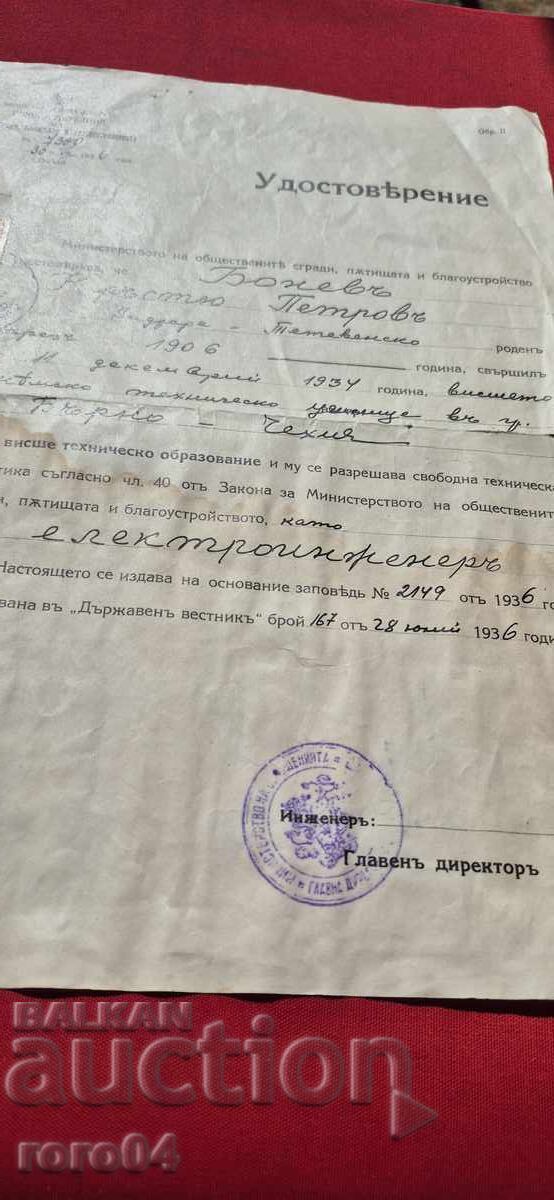 Обр. II
30
Удостовѣрение
Министерството на общественитѣ сгради, пѫтищата и благоустройство
че Боневъ
Петровъ
Тетевенско роденъ
1906 година, свършилъ
11 декемврий 1934 година, висшето
техническо училище въ гр.
Бърно - Чехия.
висше техническо образование и му се разрешава свободна техническа
тика съгласно чл. 40 отъ Закона за Министерството на общественит
и, пѫтищата и благоустройството, като
електроинженеръ
Настоящето се издава на основание заповѣдь № 2149 отъ 1936 го
вана въ „Държавенъ вестникъ“ брой 167 отъ 28 юлий 1936 годин
Инженеръ:
Главенъ директоръ
BALKAN
auction
roro04